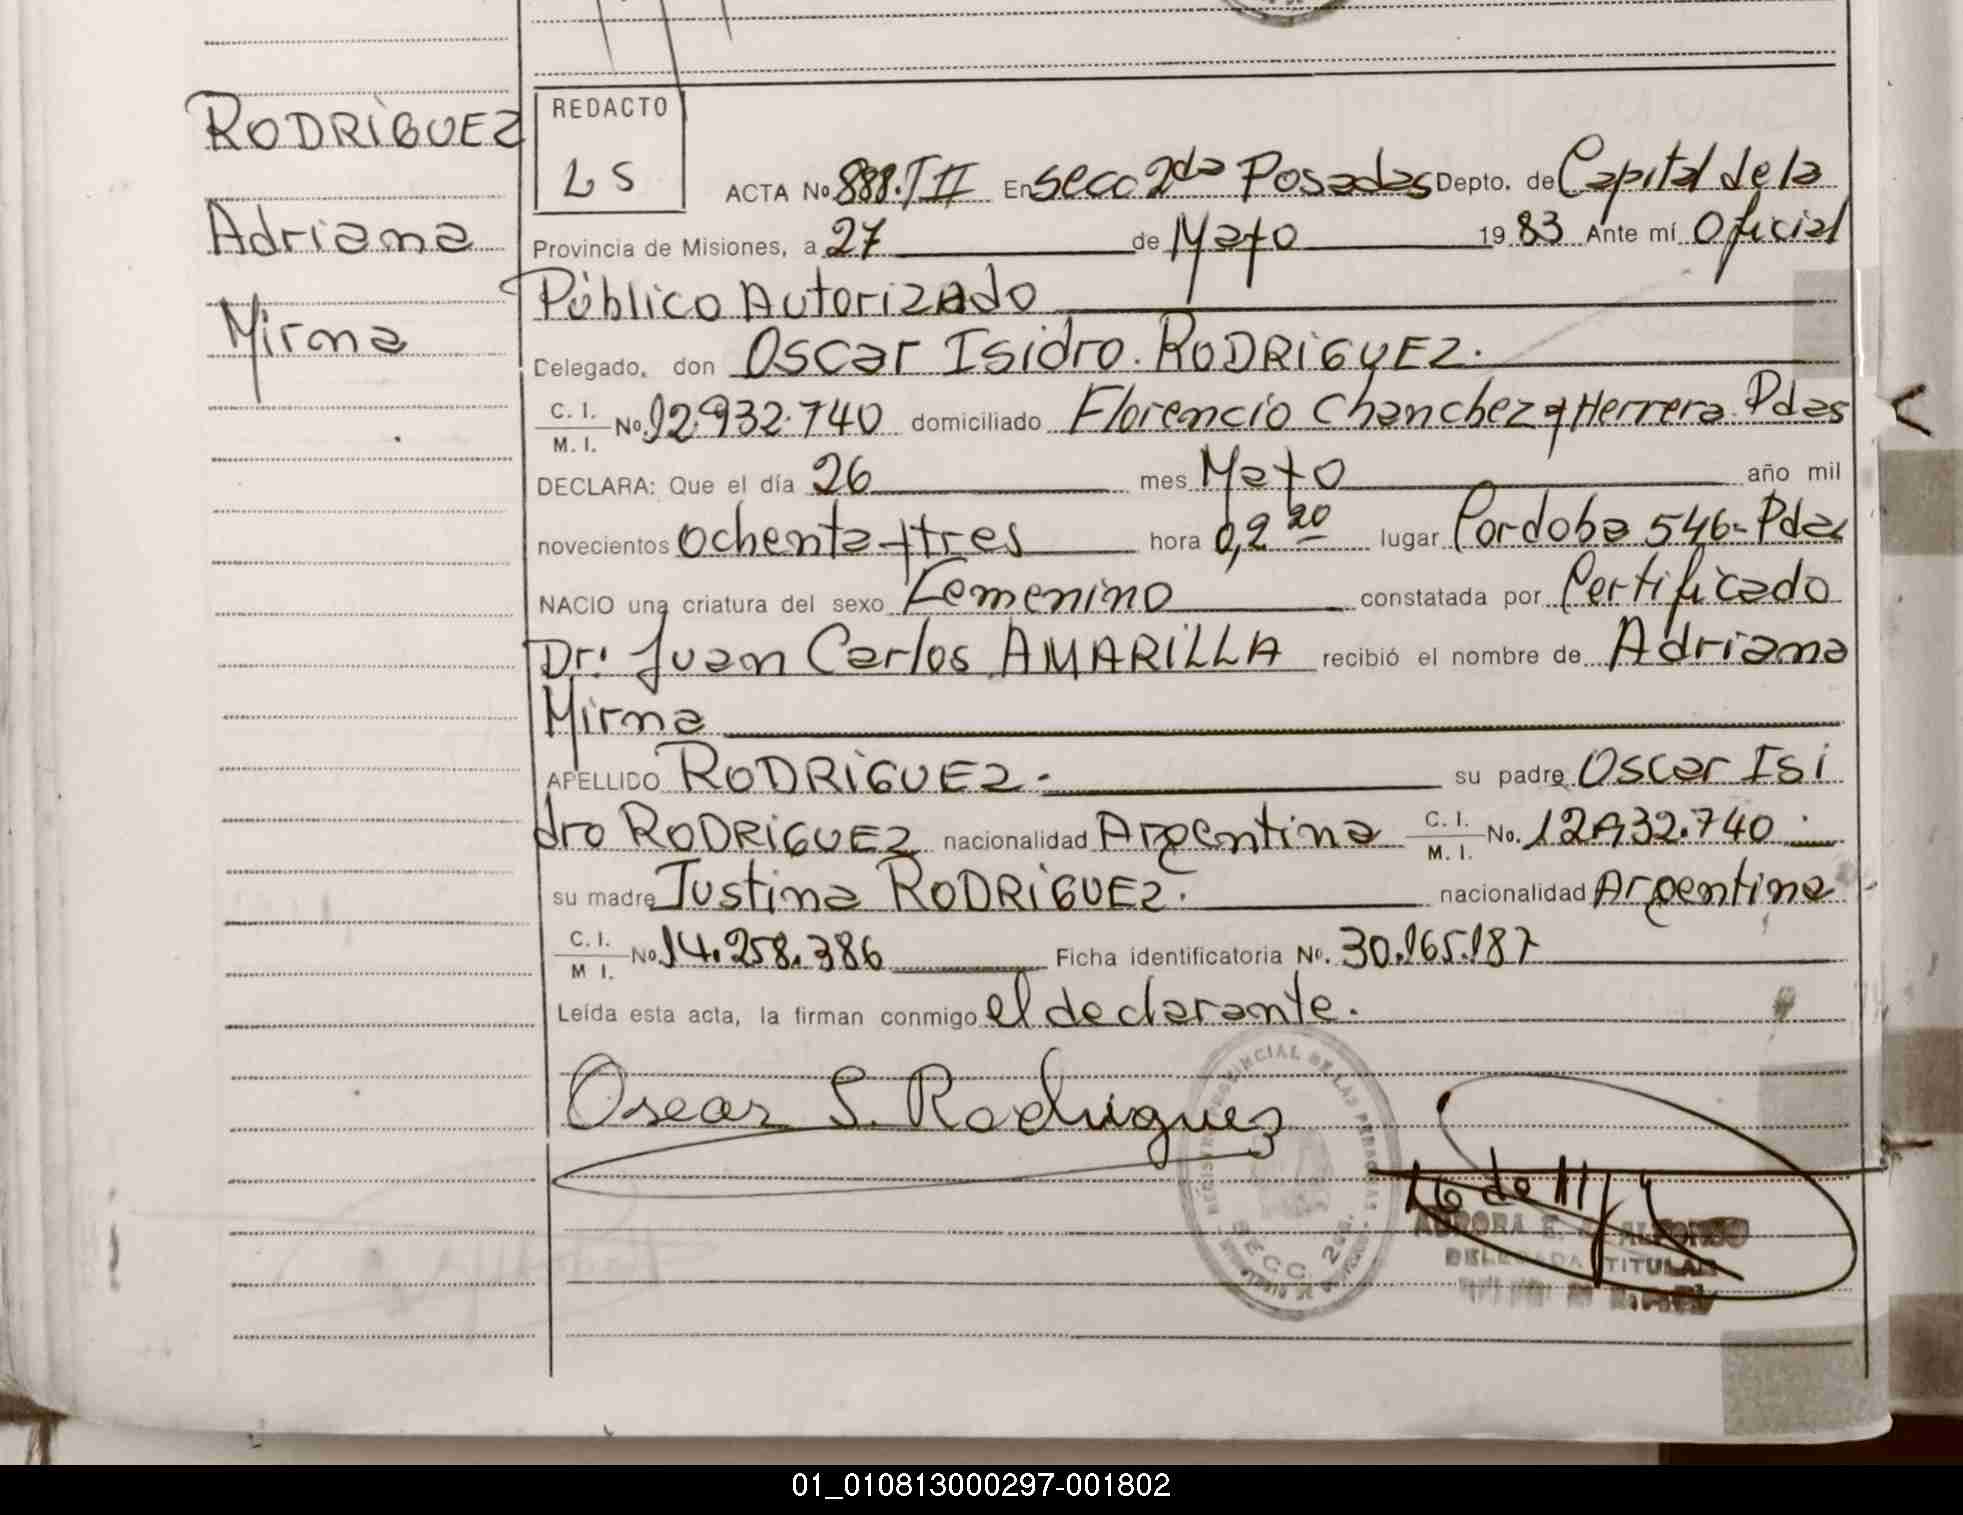 RODRÌGUEZ
Adriana
Mirna
REDACTO
LS
ACTA No 888.TII En secc 2da Posadas Depto. de Capital de la
Provincia de Misiones, a 27 de Mayo 1983 Ante mí Oficial
Público Autorizado
Delegado, don Oscar Isidro. RODRIGUEZ.
C. I.
M. I. No. 12.932.740 domiciliado Florencio Chanchez y Herrera Pdas
DECLARA: Que el día 26 mes Mayo año mil
novecientos ochenta y tres hora 0,2 20 lugar Cordoba 546- Pdas
NACIO una criatura del sexo Femenino constatada por Certificado
Dr: Juan Carlos AMARILLA recibió el nombre de Adriana
Mirna
APELLIDO RODRIGUEZ. su padre Oscar Isi
dro RODRIGUEZ nacionalidad Argentina C. I.
M. I. No. 12.932.740
su madre Justina RODRIGUEZ. nacionalidad Argentina
C. I.
M I. No 14.258.386 Ficha identificatoria No. 30.165.187
Leída esta acta, la firman conmigo el declarante.
Oscar S. Rodriguez
REGISTRO PROVINCIAL DE LAS PERSONAS
SECC. 2da.
16 de 11
AURORA E. ALFONSO
DELEGADA TITULAR
01_010813000297-001802